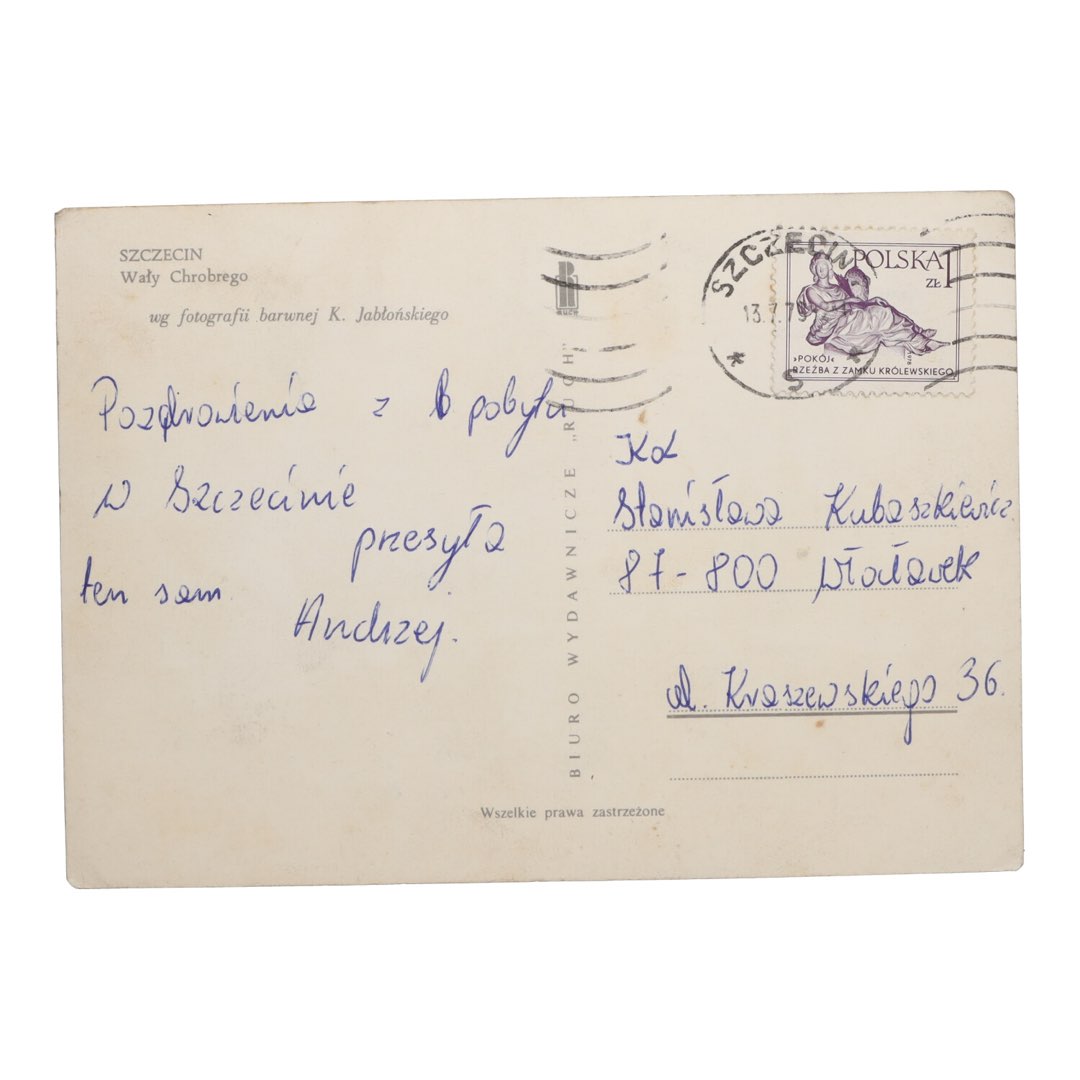 SZCZECIN
Wały Chrobrego
wg fotografii barwnej K. Jabłońskiego
Pozdrowienia z pobytu
w Szczecinie
przesyła
ten sam
Andrzej.
BIURO WYDAWNICZE „RUCH”
RUCH
SZCZECIN
13.7.79
* S *
POLSKA 1
ZŁ
›POKÓJ‹
RZEŹBA Z ZAMKU KRÓLEWSKIEGO
Stanisława Kubaszkiewicz
87-800 Włocławek
ul. Kraszewskiego 36.
Wszelkie prawa zastrzeżone